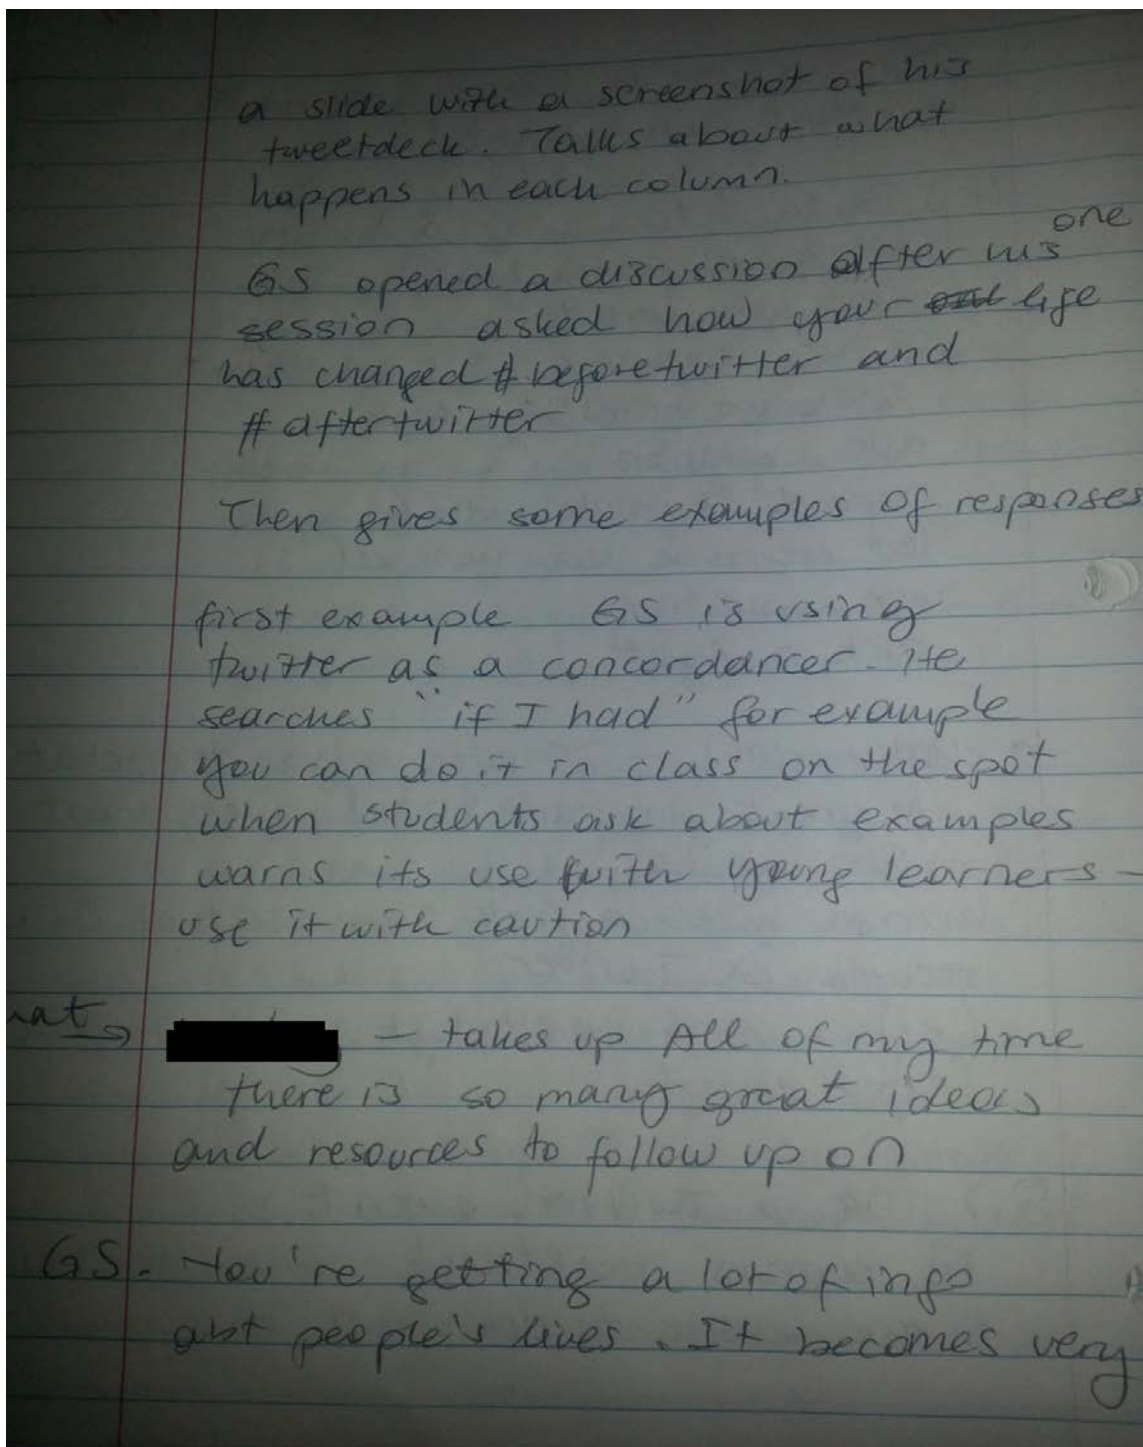 a slide with a screenshot of his
tweetdeck. Talks about what
happens in each column.
one
GS opened a discussion after his
session asked how your life
has changed #beforetwitter and
#aftertwitter
Then gives some examples of responses
first example GS is using
twitter as a concordancer. He
searches "if I had" for example
you can do it in class on the spot
when students ask about examples
warns its use with young learners -
use it with caution
hat → - takes up All of my time
there is so many great ideas
and resources to follow up on
GS. You're getting a lot of info
abt people's lives. It becomes very